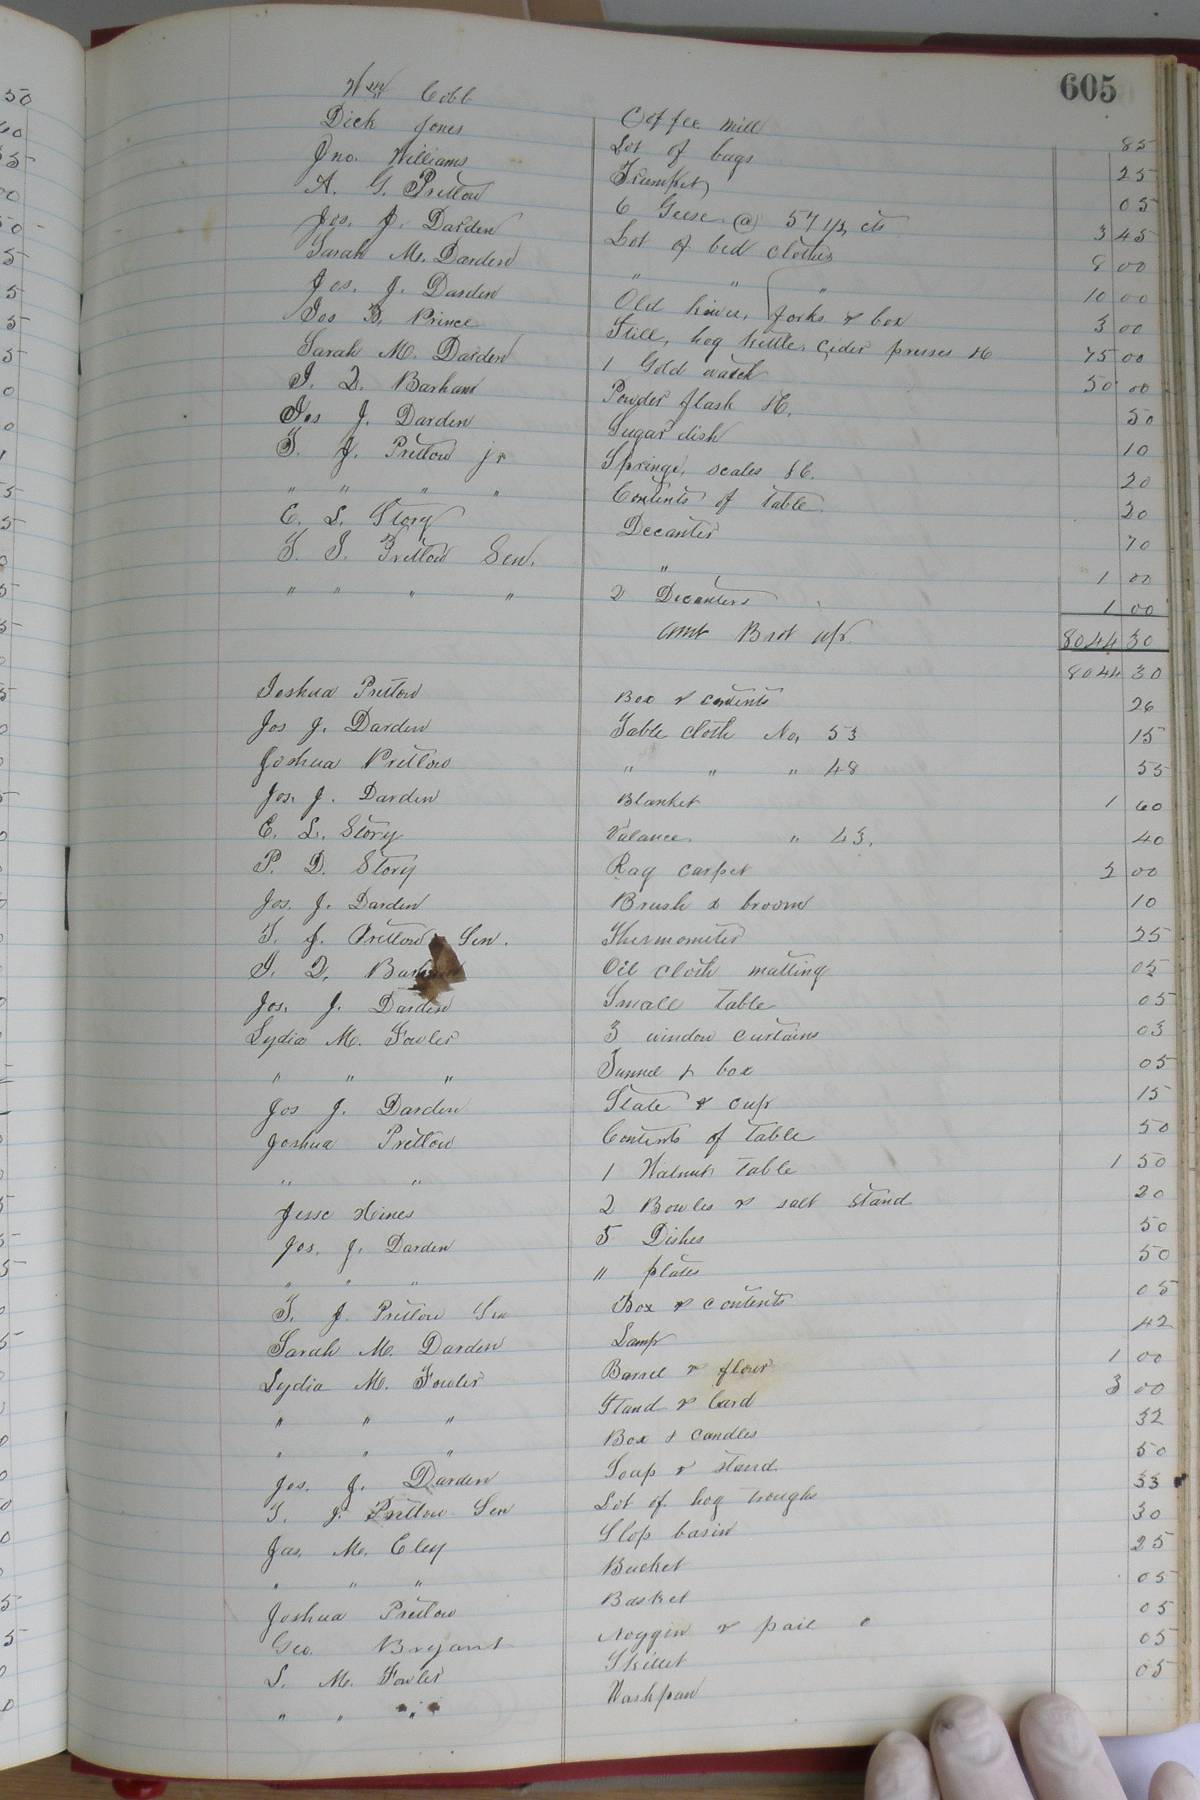 605
Wm Cobb Coffee mill 85
Dick Jones Lot of bags 25
Jno. Williams Trumpet 05
A. G. Pretlow 6 Geese @ 57 1/2 cts 3 45
Jos. J. Darden Lot of bed clothes 8 00
Sarah M. Darden " " " 10 00
Jos. J. Darden Old knives, forks & box 3 00
Jos B. Prince Still, hog kettle, cider presses &c 75 00
Sarah M. Darden 1 Gold watch 50 00
J. D. Barham Powder flask &c. 50
Jos J. Darden Sugar dish 10
T. J. Pretlow jr Springe, scales &c. 20
" " " " Contents of table 20
E. L. Story Decanter 70
T. J. Pretlow Sen. " 1 00
" " " " 2 Decanters 1 00
8044 30
Amt Brot up 8044 30
Joshua Pretlow Box & contents 26
Jos J. Darden Table cloth No, 53 15
Joshua Pretlow " " " 48 55
Jos. J. Darden Blanket 1 60
E. L. Story Valance " 43. 40
P. D. Story Rag carpet 2 00
Jos. J. Darden Brush & broom 10
T. J. Pretlow Sen. Thermometer 25
J. D. Barham Oil cloth matting 05
Jos. J. Darden Small table 05
Lydia M. Fowler 3 window curtains 03
" " " Funnel & box 05
Jos J. Darden Slate & cup 15
Joshua Pretlow Contents of table 50
" " 1 Walnut table 1 50
Jesse Hines 2 Bowles & salt stand 20
Jos. J. Darden 5 Dishes 50
" " " " plates 50
T. J. Pretlow Sen Box & contents 05
Sarah M. Darden Lamp 42
Lydia M. Fowler Barrel & flour 1 00
" " " Stand & lard 3 00
" " " Box & candles 32
Jos. J. Darden Soap & stand 50
T. J. Pretlow Sen Lot of hog troughs 33
Jas. M. Eley Slop basin 30
" " " Bucket 25
Joshua Pretlow Basket 05
Geo. Bryant Noggin & pail 05
L. M. Fowler Skillet 05
" " " Washpan 05